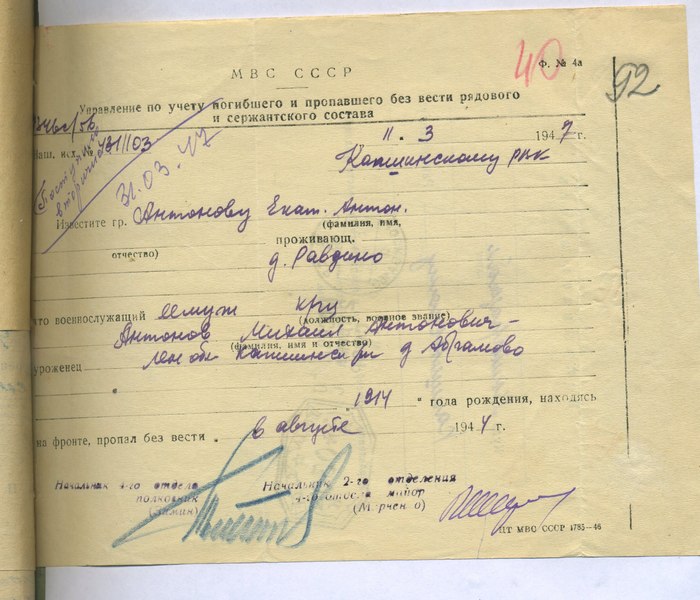 40
92
Ф. № 4а
МВС СССР
Управление по учету погибшего и пропавшего без вести рядового
и сержантского состава
Наш. исх. № 731103
11. 3 1947 г.
31.03.47
Кашинскому рвк
вторично
Известите гр. Антонову Екат. Антон.
(фамилия, имя,
отчество)
проживающ.
д. Равдино
что военнослужащий ее муж кр-ц
(должность, военное звание)
Антонов Михаил Антонович -
(фамилия, имя и отчество)
уроженец обл Кашинск д Абрамово
1914 " года рождения, находясь
на фронте, пропал без вести в августе 1944 г.
Начальник 4-го отдела
полковник
Начальник 2-го отделения
4-го отдела майор
ЦТ МВС СССР 4785—46